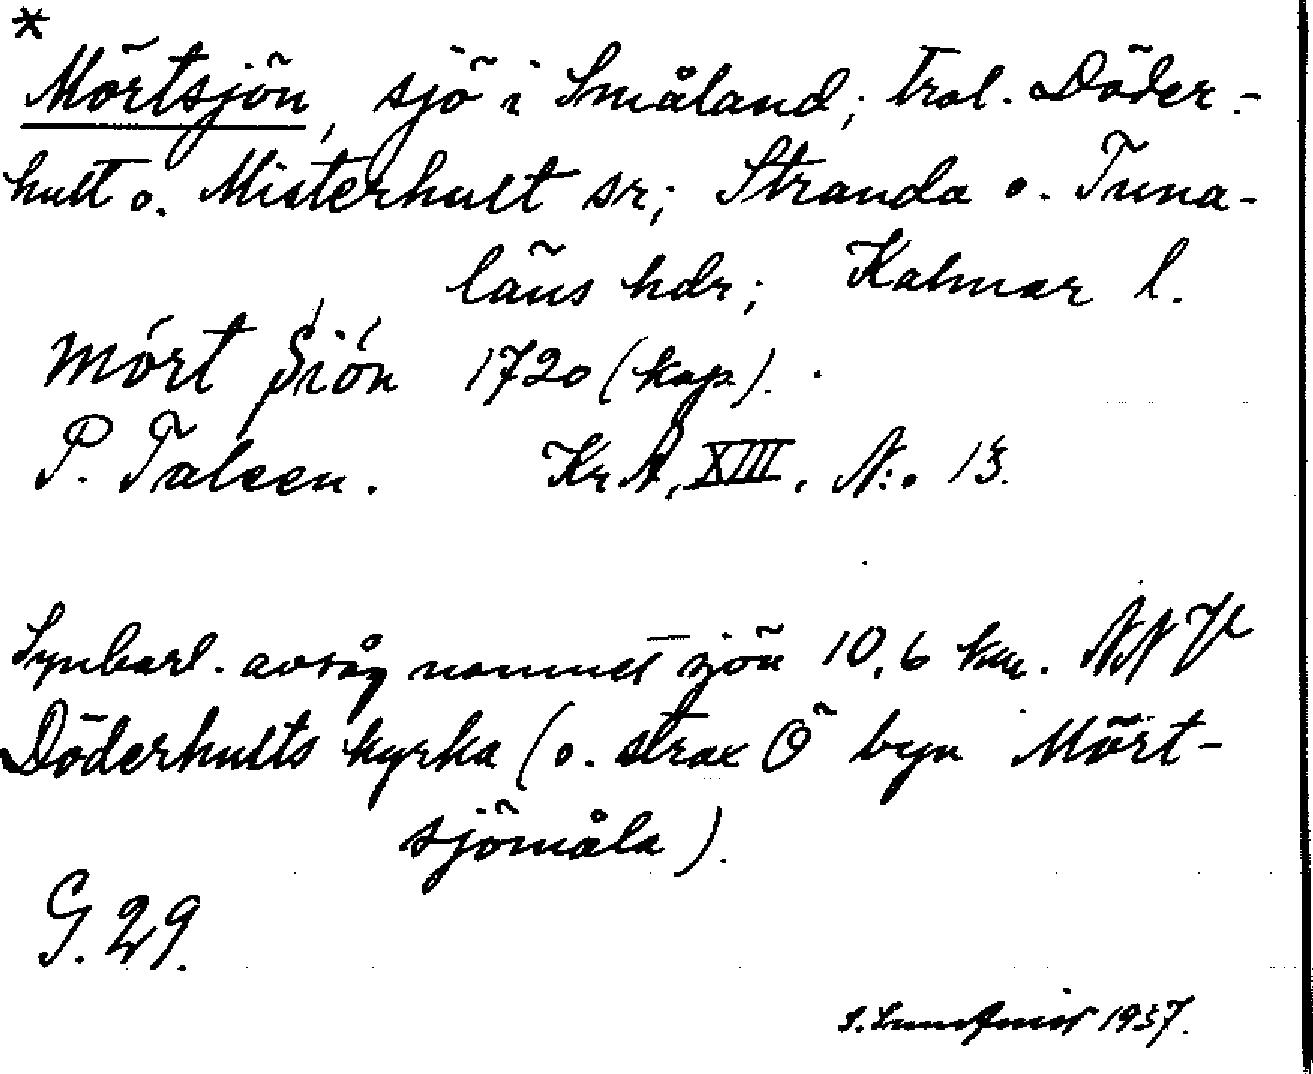 *
Mörtsjön, sjö i Småland; trol. Döder-
hult o. Misterhult sr; Stranda o. Tuna-
läns hdr; Kalmar l.
Mört Siön 1720 (kop).
P. Taleen. KrA, XIII, N:o 13.
Synbarl. avsåg namnet sjön 10,6 km. NNV
Döderhults kyrka (o. strax Ö byn Mört-
sjömåla).
G. 29.
1937.